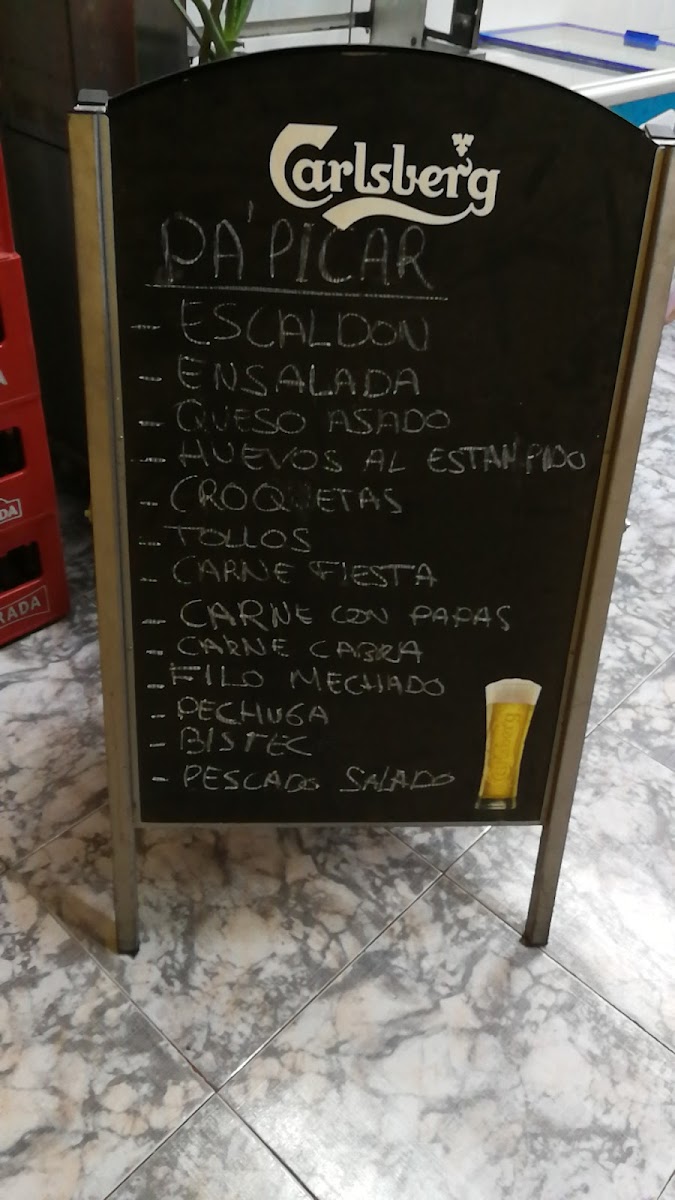 Carlsberg
PA'PICAR
- ESCALDON
- ENSALADA
- QUESO ASADO
- HUEVOS AL ESTAMPIDO
- CROQUETAS
- TOLLOS
- CARNE FIESTA
- CARNE CON PAPAS
- CARNE CABRA
- FILO MECHADO
- PECHUGA
- BISTEC
- PESCADO SALADO
Carlsberg
RADA